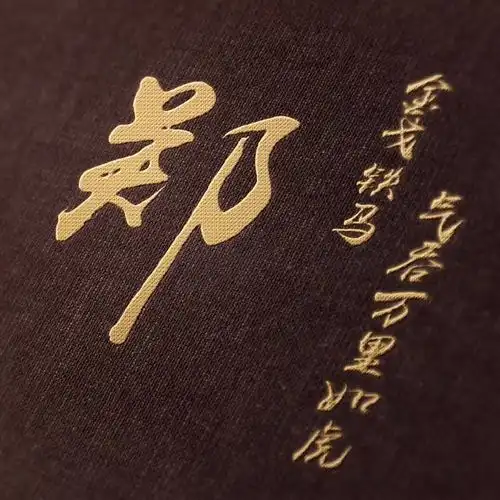 郑
金戈铁马
气吞万里如虎